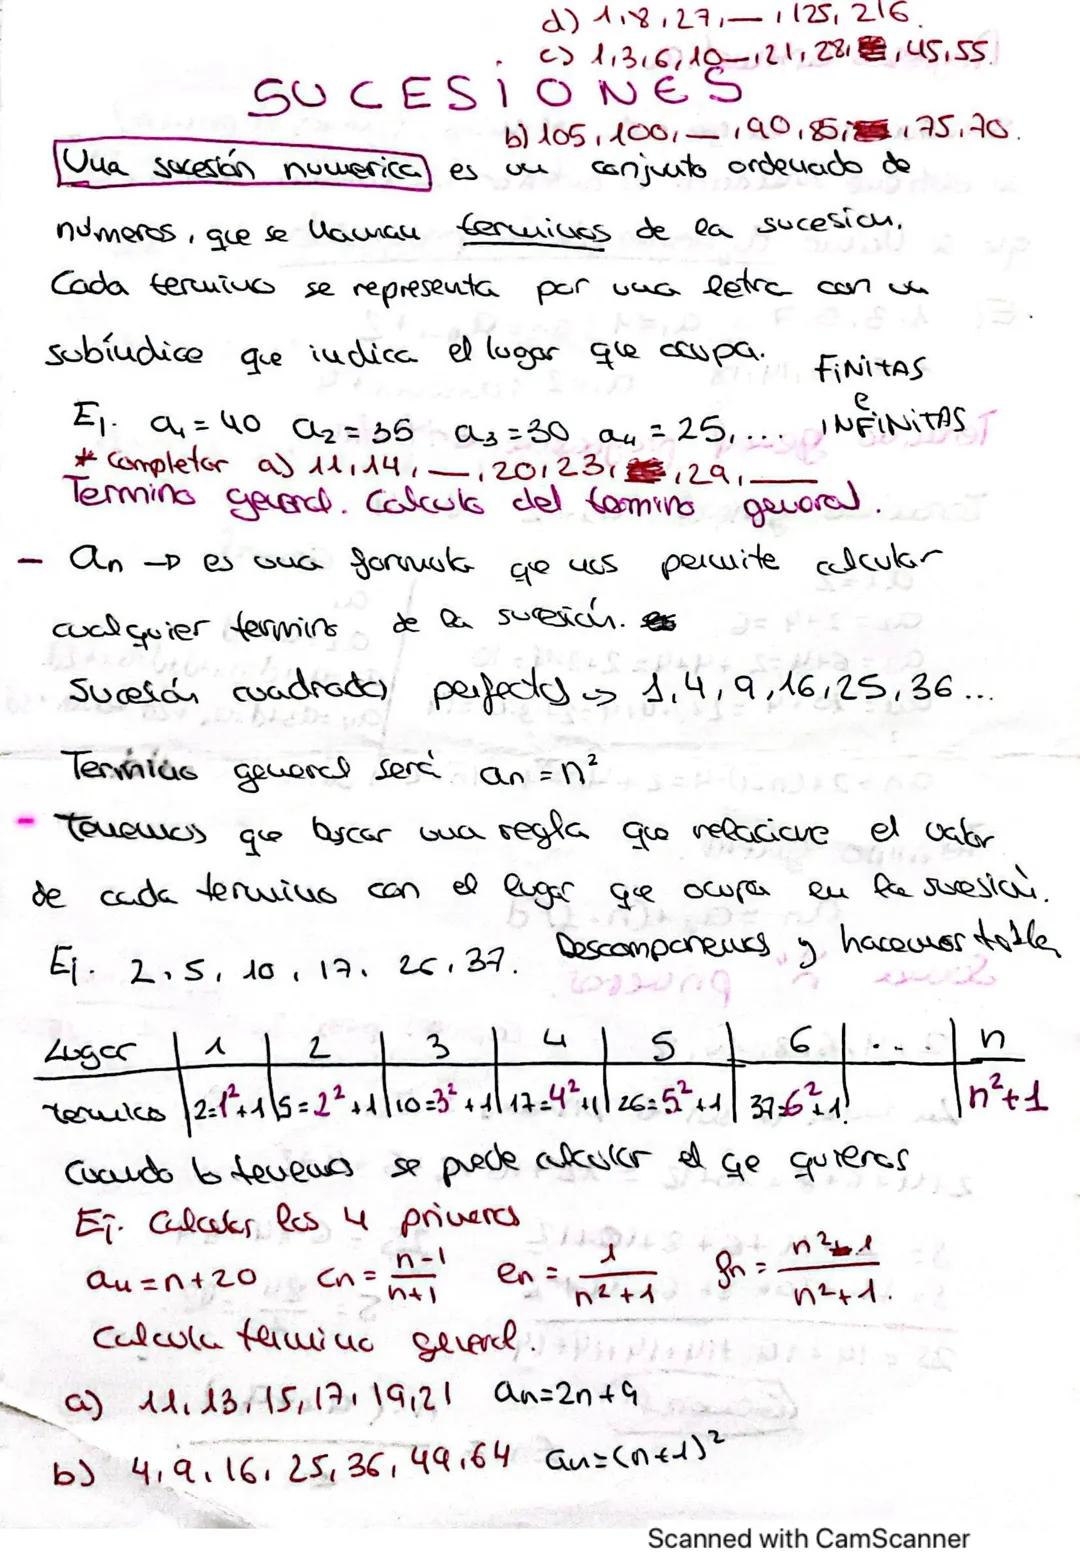 d) 1,8,27,—,125,216.
c) 1,3,6,10—,21,28,,45,55.
SUCESIONES
b) 105,100,—,90,85,,75,70.
Una sucesión numerica es un conjunto ordenado de
números, que se llaman terminos de la sucesión.
Cada termino se representa por una letra con un
subíndice que indica el lugar que ocupa.
FINITAS
e
INFINITAS
Ej. a₁=40 a₂=35 a₃=30 a₄=25,...
* Completar a) 11,14,—,20,23,,29,—
Termino general. Calculo del termino general.
- an → es una formula que nos permite calcular
cualquier termino de la sucesión.
Sucesión cuadrados perfectos → 1,4,9,16,25,36...
Termino general será an=n²
- Tenemos que buscar una regla que relacione el valor
de cada termino con el lugar que ocupa en la sucesión.
Ej. 2,5,10,17,26,37. Descomponemos y hacemos tabla
Lugar | 1 | 2 | 3 | 4 | 5 | 6 | ... | n
Termino | 2=1²+1 | 5=2²+1 | 10=3²+1 | 17=4²+1 | 26=5²+1 | 37=6²+1 | | n²+1
Cuando lo tenemos se puede calcular el que quieras
Ej. Calcular los 4 primeros
an=n+20 cn=n-1/n+1 en=1/n²+1 fn=n²-1/n²+1.
Calcula termino general.
a) 11,13,15,17,19,21 an=2n+9
b) 4,9,16,25,36,49,64 an=(n+1)²
Scanned with CamScanner